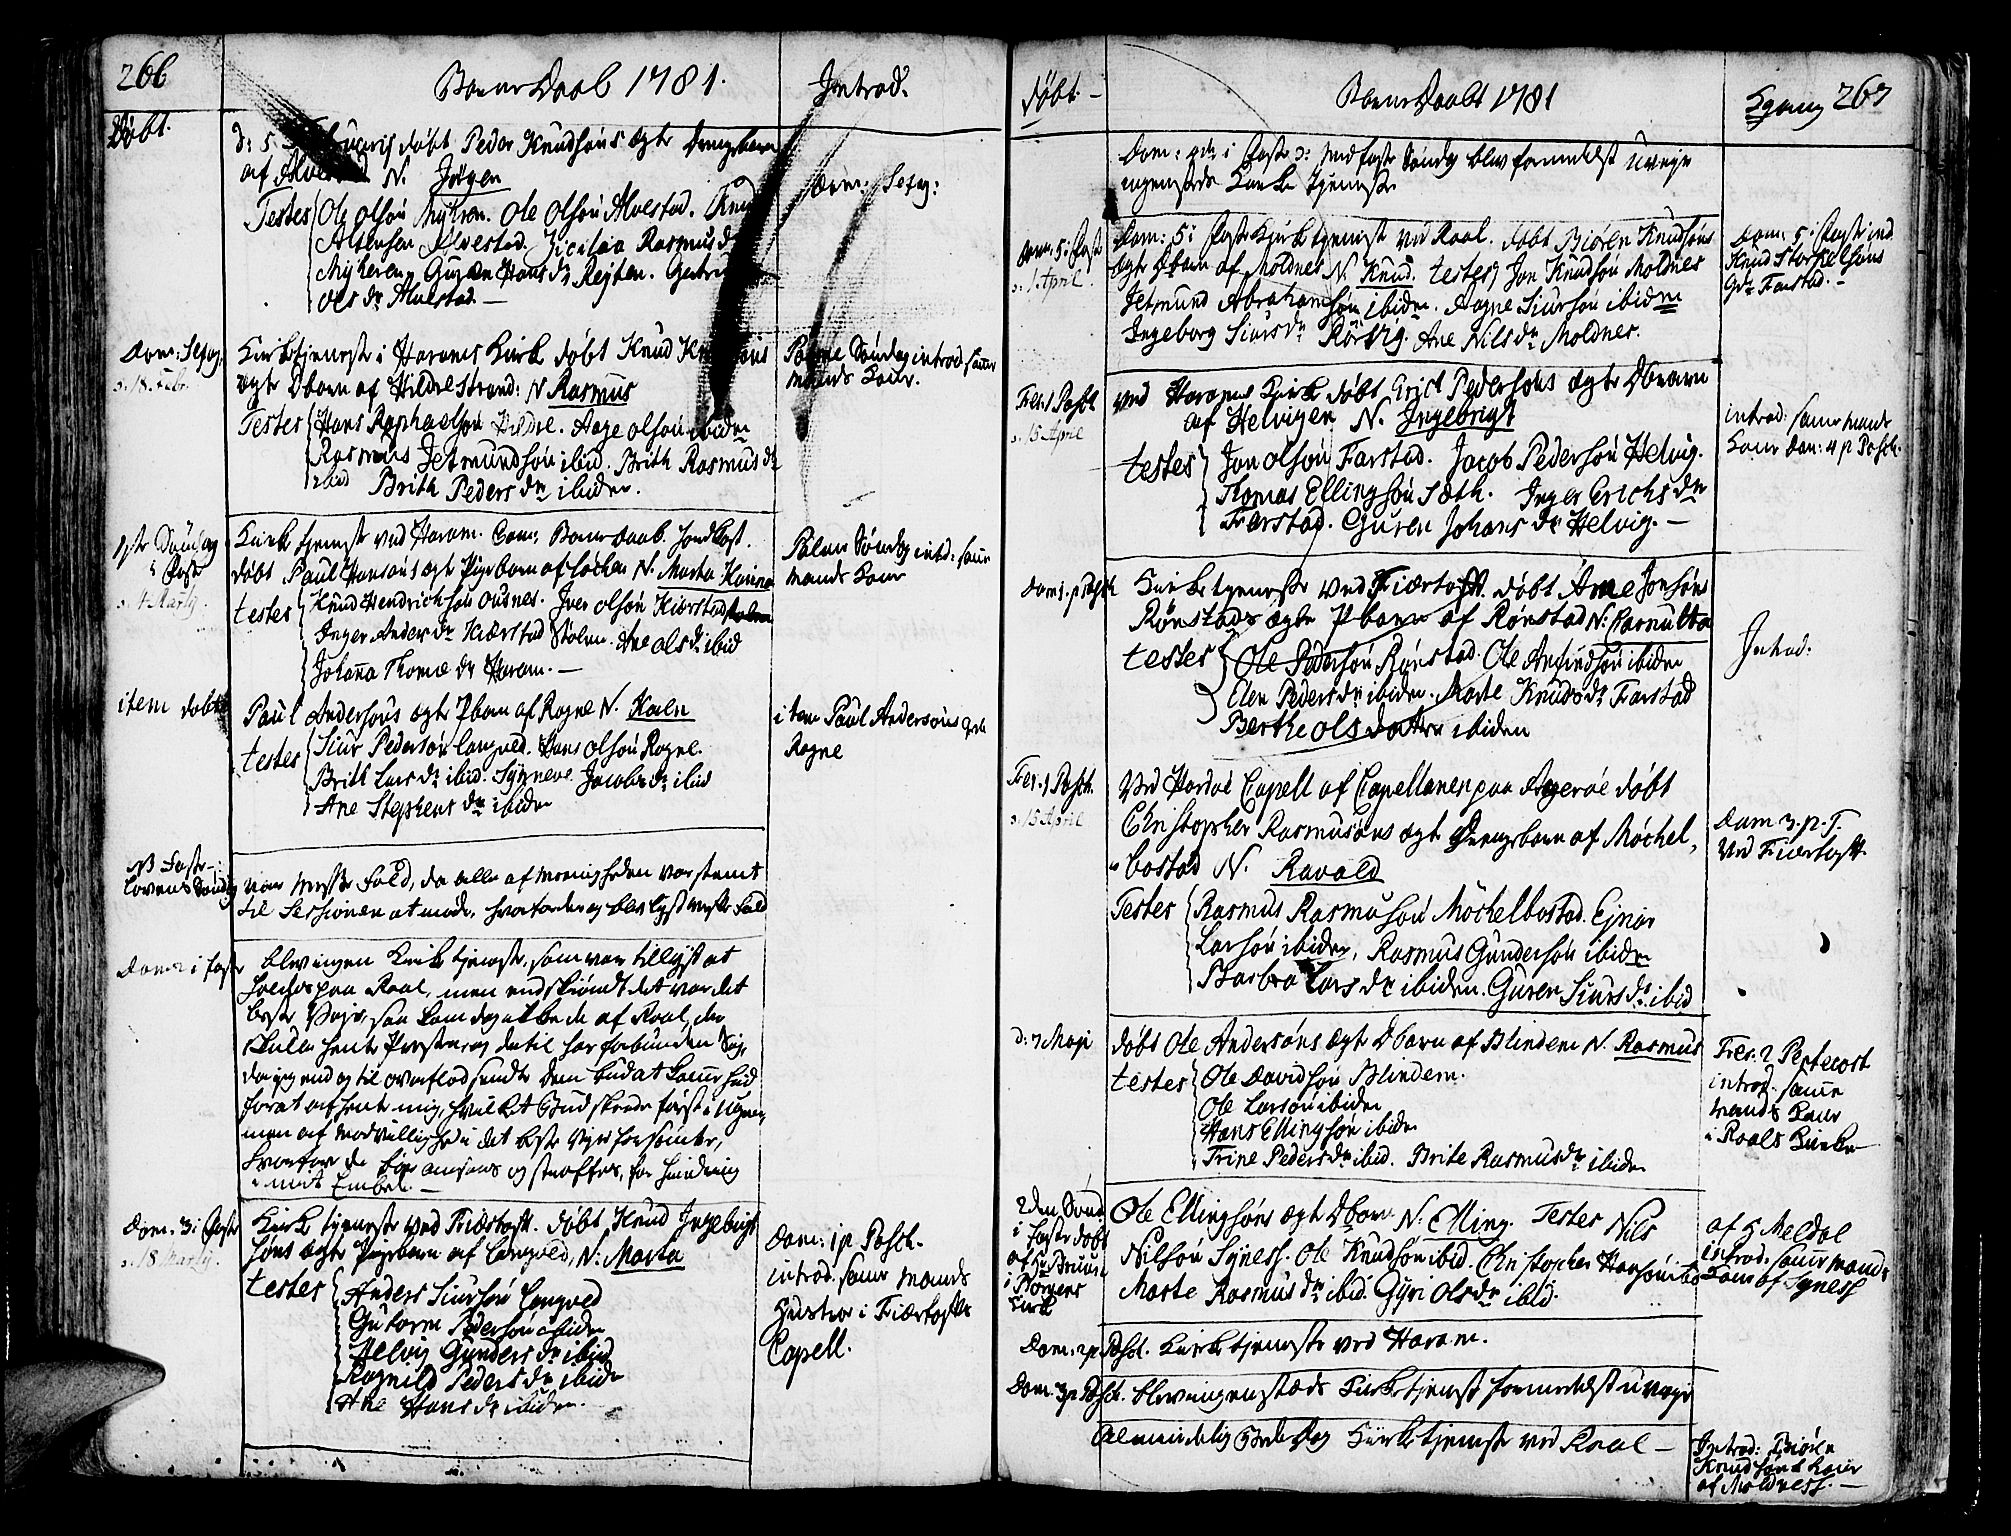 266
Børne Daab 1781.
Introd:
Døbt.
d: 5 Februarij døbt Peder Knudsøns ægte drengebarn
af Alvestad N. Jørgen
Testes Ole Olsøn Myhren. Ole Olsøn Alvestad. Knud
Alvestad. Rasmus dr
Myheren. Guren Hans dr Rejten.
Ols dr Alvestad.—
Dom: Sexag:
Dom: Sexag.
d. 18. Feb.
Kirketieneste i Harams Kirke døbt Knud Knudsøns
ægte Dbarn af Hildrestrand: N Rasmus
Testes Hans Raphaelsøn Hildre. Aage Olsøn ibiden
Rasmus Jetmundsøn ibid. Brith Rasmus dr
ibid Brith Peders dr ibiden.
Palme Søndag introd. samme
Mands Kone.
1ste Søndag
i Faste
d. 4 Martij.
Kirketjeneste ved Haram. Com: Børne Daab.
døbt Paul Hansøns ægte Pigebarn af Løchen N. Marta Karina
testes Knud Hendrichsøn Ousnes. Iver Olsøn Kiærstad
Inger Anders dr Kiærstad Stølen. Ane Ols dr ibid
Johanna Thome dr Haram.—
Palme Søndag introd: samme
Mands Kone
item døbt
Paul Andersøns ægte Pbarn af Rogne N. Karen
testes Siur Pedersøn Longved. Hans Olsøn Rogne.
Brith Lars dr ibid. Synneve Jacobs dr ibid
Ane Stephens dr ibiden
item Paul Andersøns
Rogne
var Messe Fald, da alle af Menigheden var stemt
til Sessionen at møde, hvorfor der og blev lyst Messe Fald
Dom: 2 i Faste
blev ingen Kirketjeneste, som var tillyst at
holdes paa Roal, men endskiøndt det var det
beste Vejr, saa kom dog ikke de af Roal, der
skulle hente Præsten og dertil har forbunden Sig,
da jeg end og til overflod sendte dem bud at komme hid
for at afhente mig, hvilket Bud skeede først i Ugen,
men af Modvillighed i det beste Vejr forsømte,
hvorfor de bør ansees og straffes, for hindring
i mit Embede.—
Dom. 3 i Faste
d. 18 Martij.
Kirketjeneste ved Fiærtoft. døbt Knud Ingebrigt
søns ægte Pigebarn af Longved, N: Marta
testes Anders Siursøn Longved
Gutorm Pedersøn ibiden
Helvig Gunders dr ibid
Ragnild Peders dr ibiden
Ane Hans dr ibiden.
Dom: 1 p Pasch.
introd. samme Mands
Hustroe i Fiærtofts
Capell.
døbt.—
Børne Daabt 1781
267
Dom: 4de i Faste d: Midfaste Søndag blev formedelst Uvejr
ingensteds Kirke tjeneste
Dom. 5 i Faste
d. 1 April.
Dom: 5 i Faste Kirketjeneste ved Roal. døbt Biøren Knudsøns
ægte Dbarn af Moldnes N. Knud. testes Jon Knudsøn Moldnes
Jetmund Abrahamsøn ibiden. Aagne Siursøn ibiden
Ingeborg Siurs dr Rørvig. Ane Nils dr Moldnes.
Dom: 5 i Faste ind
Knud Storkelsøns
Farstad.—
Fer. 1 Pasch
d. 15 April
ved Harams Kirke døbt Erich Pedersøns ægte Dbarn
af Helvigen N. Ingebrigt
testes Jon Olsøn Farstad. Jacob Pedersøn Helvig.
Thomas Ellingsøn Sæth. Inger Erichs dr
Farstad. Guren Johans dr Helvig.—
introd: samme Mands
Kone Dom: 4 p Pasch.
Dom 1. p Pasch
Kirketjeneste ved Fiærtoft. døbt Arne Jonsøns
Rønstads ægte Pbarn af Rønstad N: Pernulta
testes Ole Pedersøn Rønstad. Ole Amundsøn ibiden
Elen Peders dr ibiden. Marte Knuds dr Farstad
Berthe Ols datter ibiden
Introd:
Fer. 1 Pasch.
d. 15 April
Ved Harøe Capell af Capellanen paa Agerøe døbt
Christopher Rasmusøns ægte Drengebarn af Møchel,
bostad N. Ravald
Testes Rasmus Rasmusøn Møchelbostad. Ejnar
Larsøn ibiden, Rasmus Gundersøn ibiden
Barbra Lars dr ibiden. Guren Siurs dr ibid
Dom 3. p. T.
ved Fiærtoft.
d: 7 Maji
døbt Ole Andersøns ægte Dbarn af Blindem N. Rasmus
testes Ole Davidsøn Blindem.
Ole Larsøn ibiden
Hans Ellingsøn ibiden
Trine Peders dr ibid. Brite Rasmus dr ibiden
Fer. 2 Pentecost
introd. samme
Mands Kone
i Roals Kirke
2den Sønd
i Faste døbt
i Borgens
Kirke
Ole Ellingsøns ægte Dbarn N. Elling. Testes Nils
Nilsøn Syness. Ole Knudsøn ibid. Christopher Hansøn ibid
Marte Rasmus dr ibid. Gyri Ols dr ibid.
af H Meldal
introd. samme Mands
Kone af Syness
Dom: 2 p Pasch. Kirketjeneste ved Haram.
Dom. 3 p Pasch. blev ingenstæds Kirketjenest formedelst uvejr
Almindelig Bede Dag Kirketjeneste ved Roal—
Introd: Biøren
Knudsøns Kone
af Moldness.—